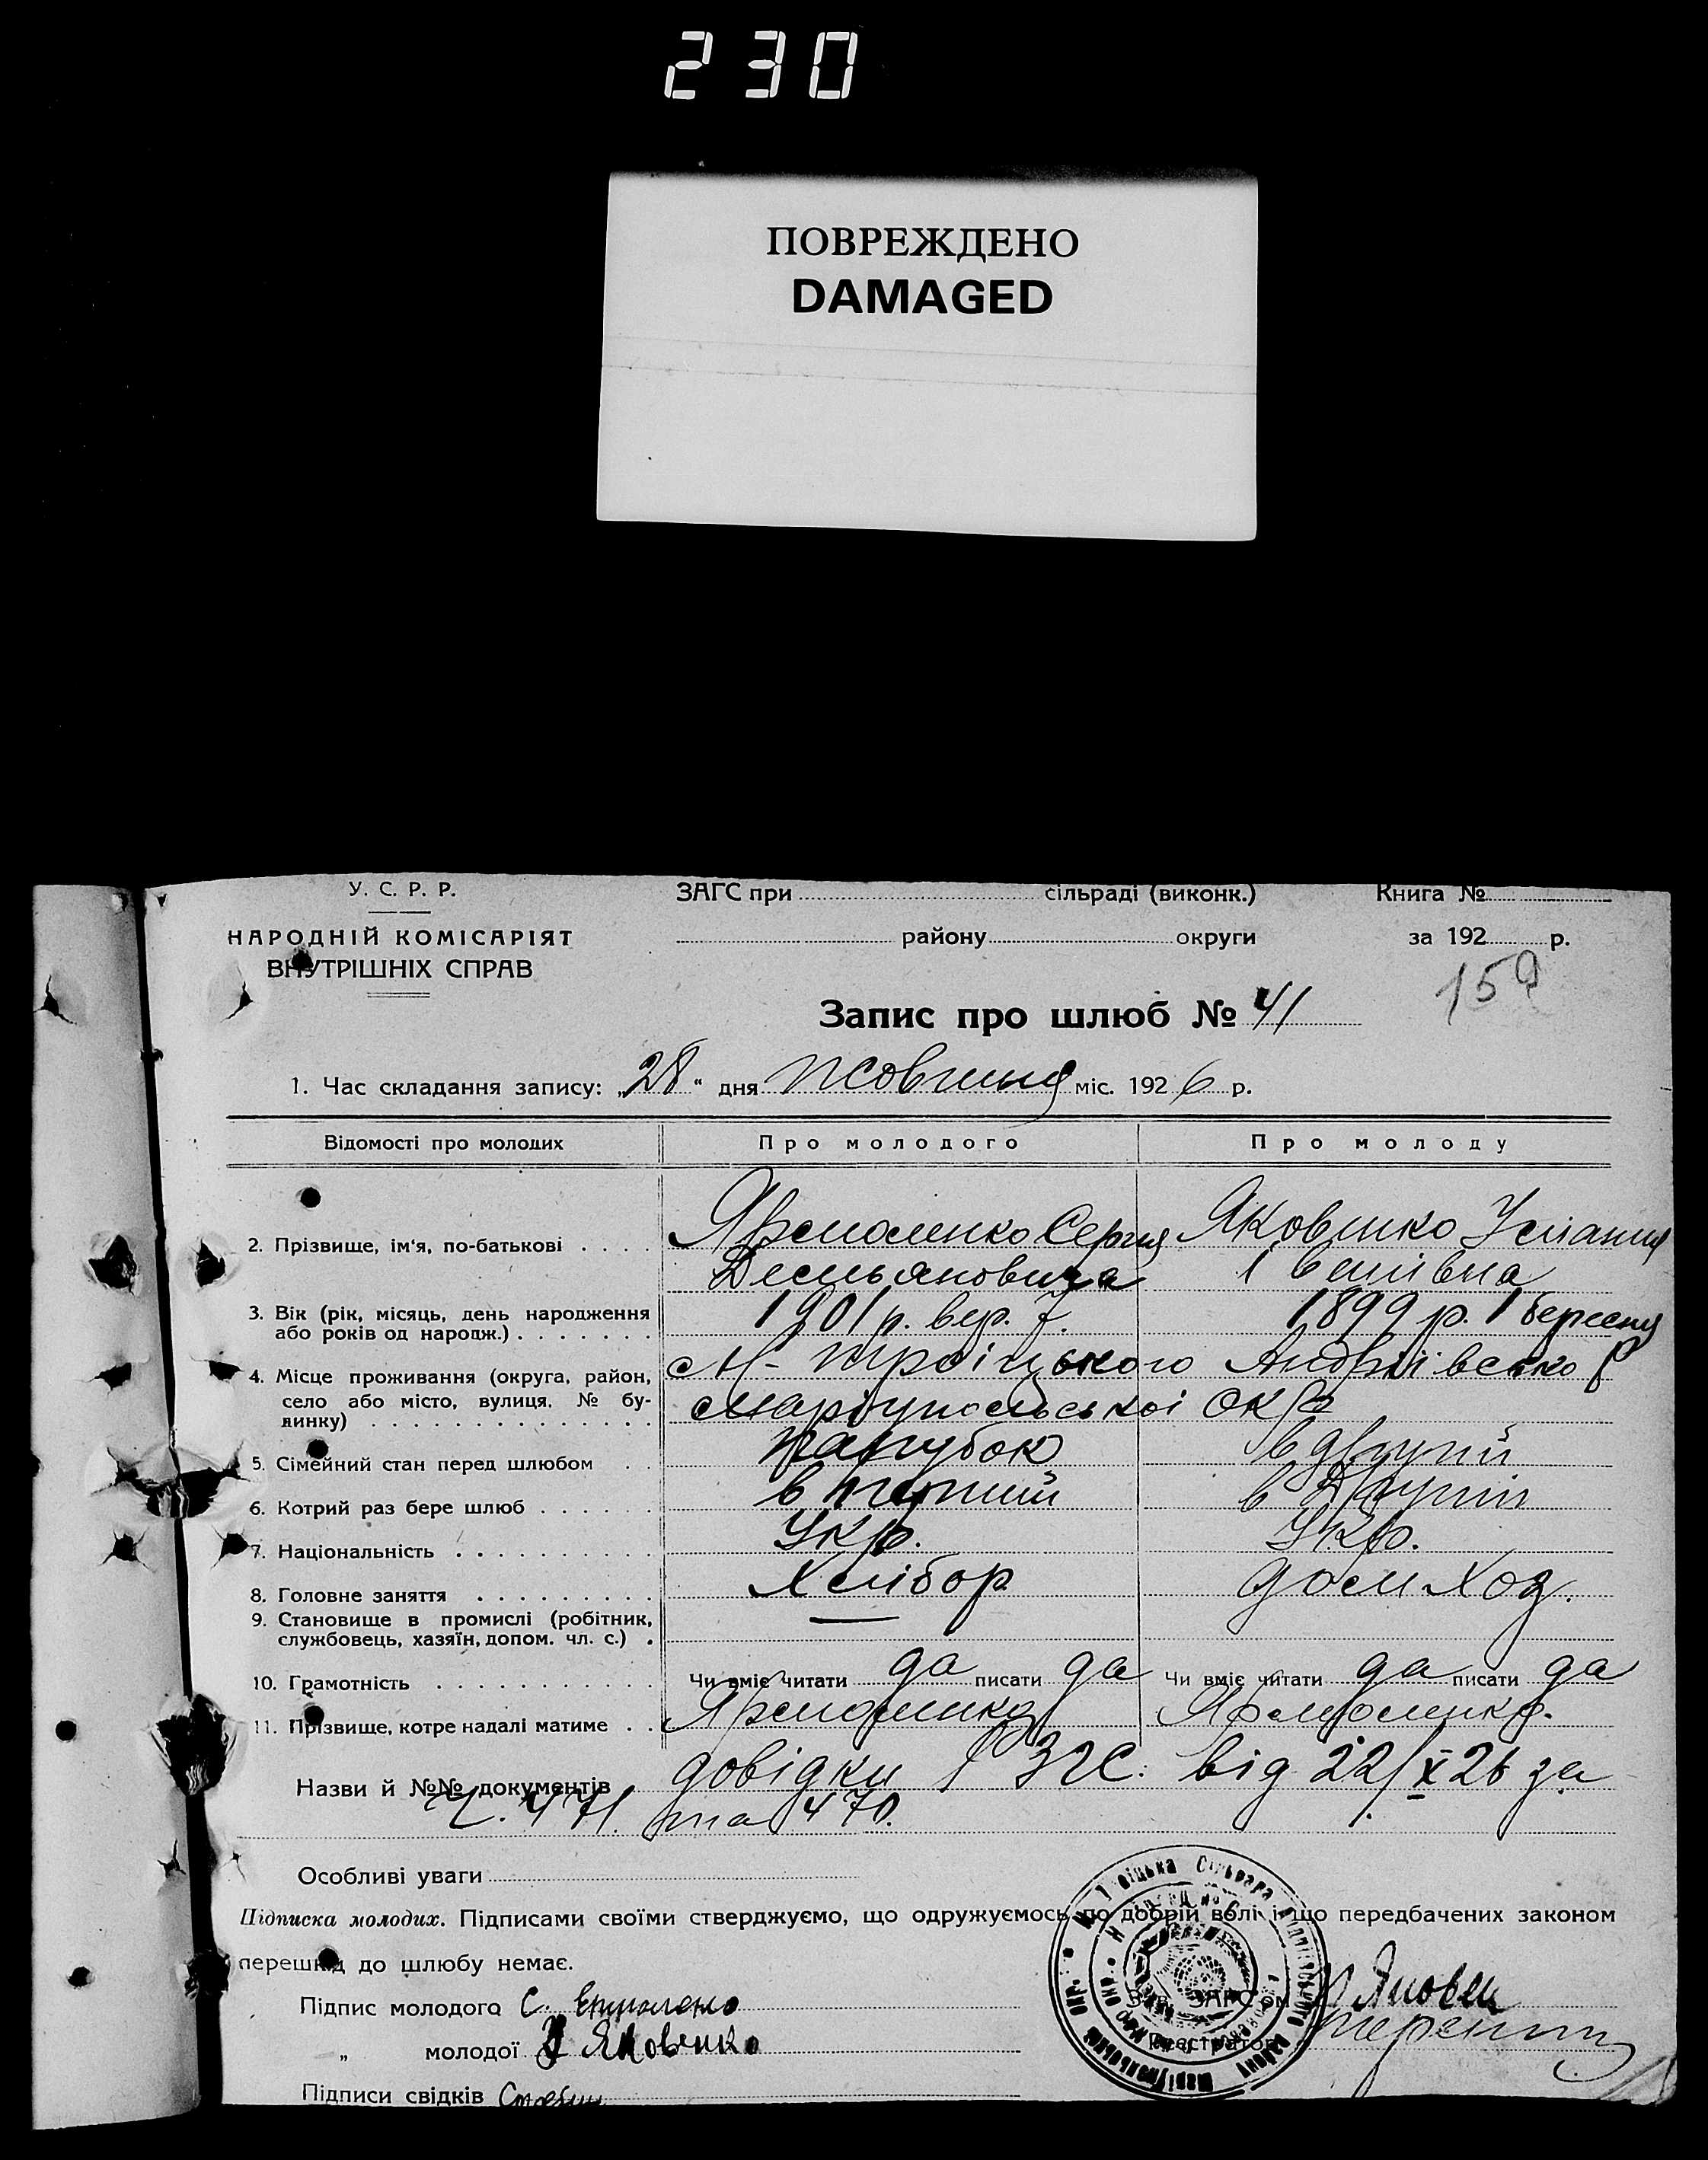 230
ПОВРЕЖДЕНО
DAMAGED
У. С. Р. Р.
НАРОДНІЙ КОМІСАРІЯТ
ВНУТРІШНІХ СПРАВ
ЗАГС при сільраді (виконк.) Книга №
району округи за 192 р.
159
Запис про шлюб № 41
1. Час складання запису: „28“ дня жовтня міс. 1926 р.
Відомості про молодих Про молодого Про молоду
2. Прізвище, ім'я, по-батькові Сергія Яковенко
Демьяновича
3. Вік (рік, місяць, день народження або років од народж.) 1901 р. вер. 7. 1899 р. 1 березня
4. Місце проживання (округа, район, село або місто, вулиця, № будинку) М-Троіцького Андріівсько
Маріупольської окр
5. Сімейний стан перед шлюбом парубок в другий
6. Котрий раз бере шлюб в перший в другий
7. Національність Укр. Укр.
8. Головне заняття Хлібор дом. ход.
9. Становище в промислі (робітник, службовець, хазяїн, допом. чл. с.) —
10. Грамотність Чи вміє читати да писати да Чи вміє читати да писати да
11. Прізвище, котре надалі матиме
Назви й №№ документів довідки ЗГС. від 22/X 26 за
Ч. 471. та 470.
Особливі уваги
Підписка молодих. Підписами своїми стверджуємо, що одружуємось по добрій волі і що передбачених законом
перешкод до шлюбу немає.
Підпис молодого С.
„ молодої Яковенко
Підписи свідків
Зав. ЗАГС'ом
Реєстратор